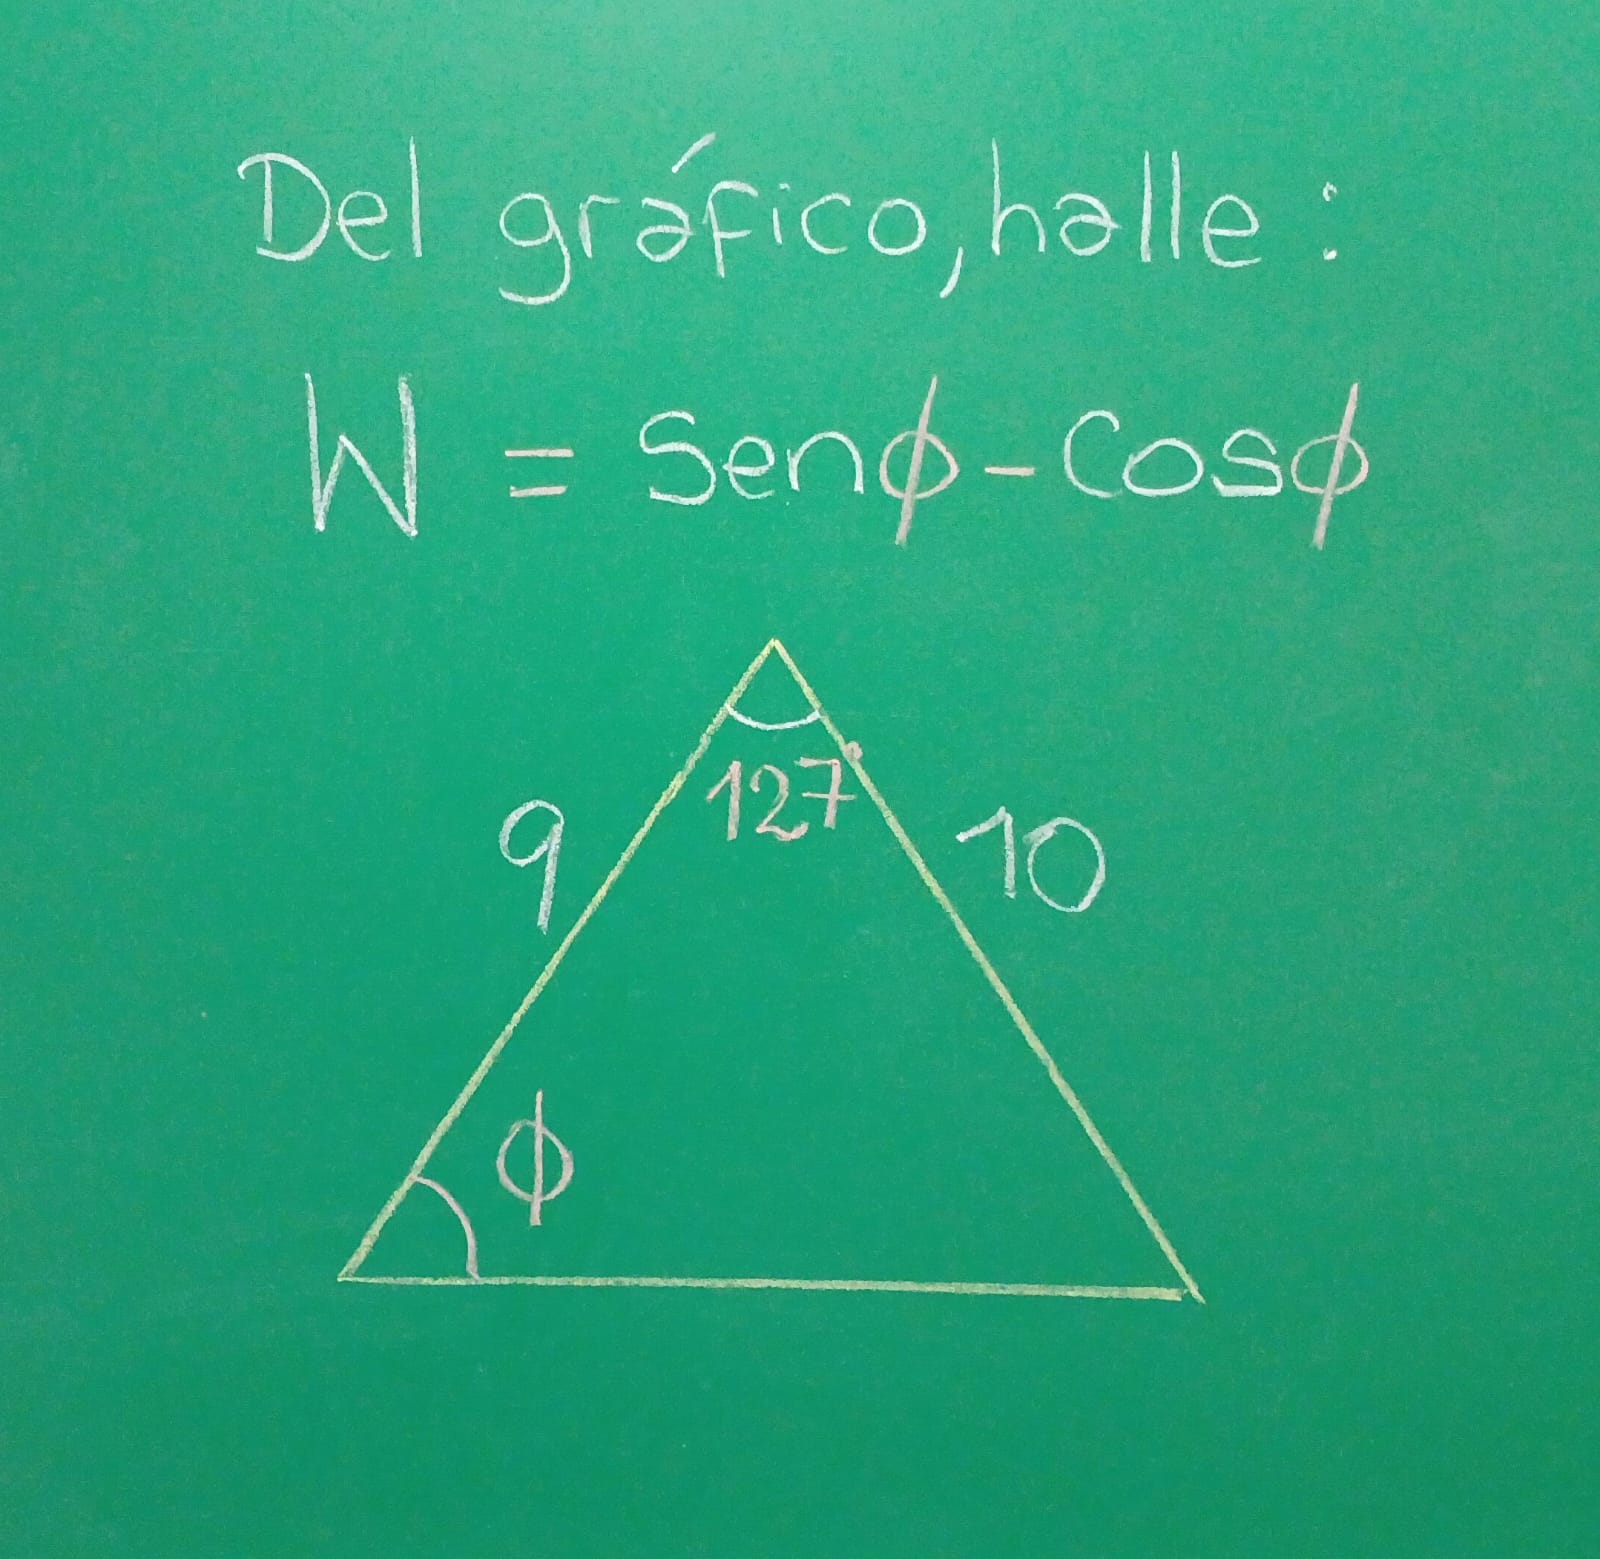 Del gráfico, halle:
W = Senϕ - Cosϕ
127°
9
10
ϕ